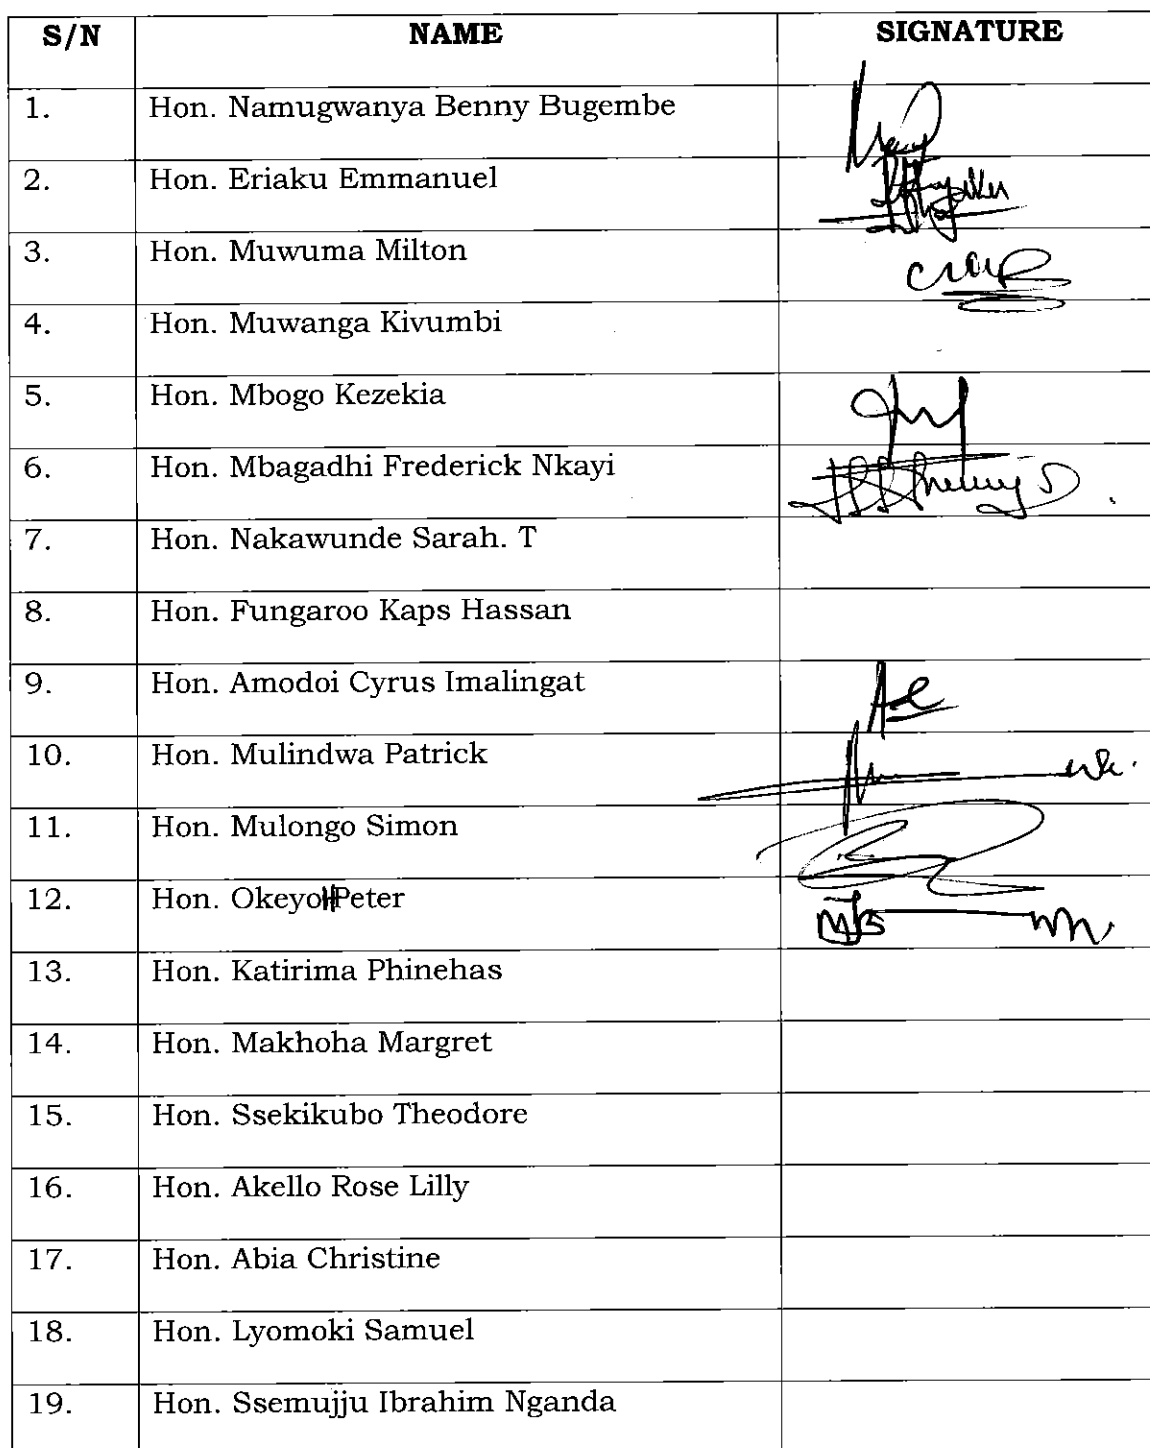 S/N NAME SIGNATURE
1. Hon. Namugwanya Benny Bugembe
2. Hon. Eriaku Emmanuel
3. Hon. Muwuma Milton
4. Hon. Muwanga Kivumbi
5. Hon. Mbogo Kezekia
6. Hon. Mbagadhi Frederick Nkayi
7. Hon. Nakawunde Sarah. T
8. Hon. Fungaroo Kaps Hassan
9. Hon. Amodoi Cyrus Imalingat
10. Hon. Mulindwa Patrick
11. Hon. Mulongo Simon
12. Hon. OkeyoH Peter
13. Hon. Katirima Phinehas
14. Hon. Makhoha Margret
15. Hon. Ssekikubo Theodore
16. Hon. Akello Rose Lilly
17. Hon. Abia Christine
18. Hon. Lyomoki Samuel
19. Hon. Ssemujju Ibrahim Nganda